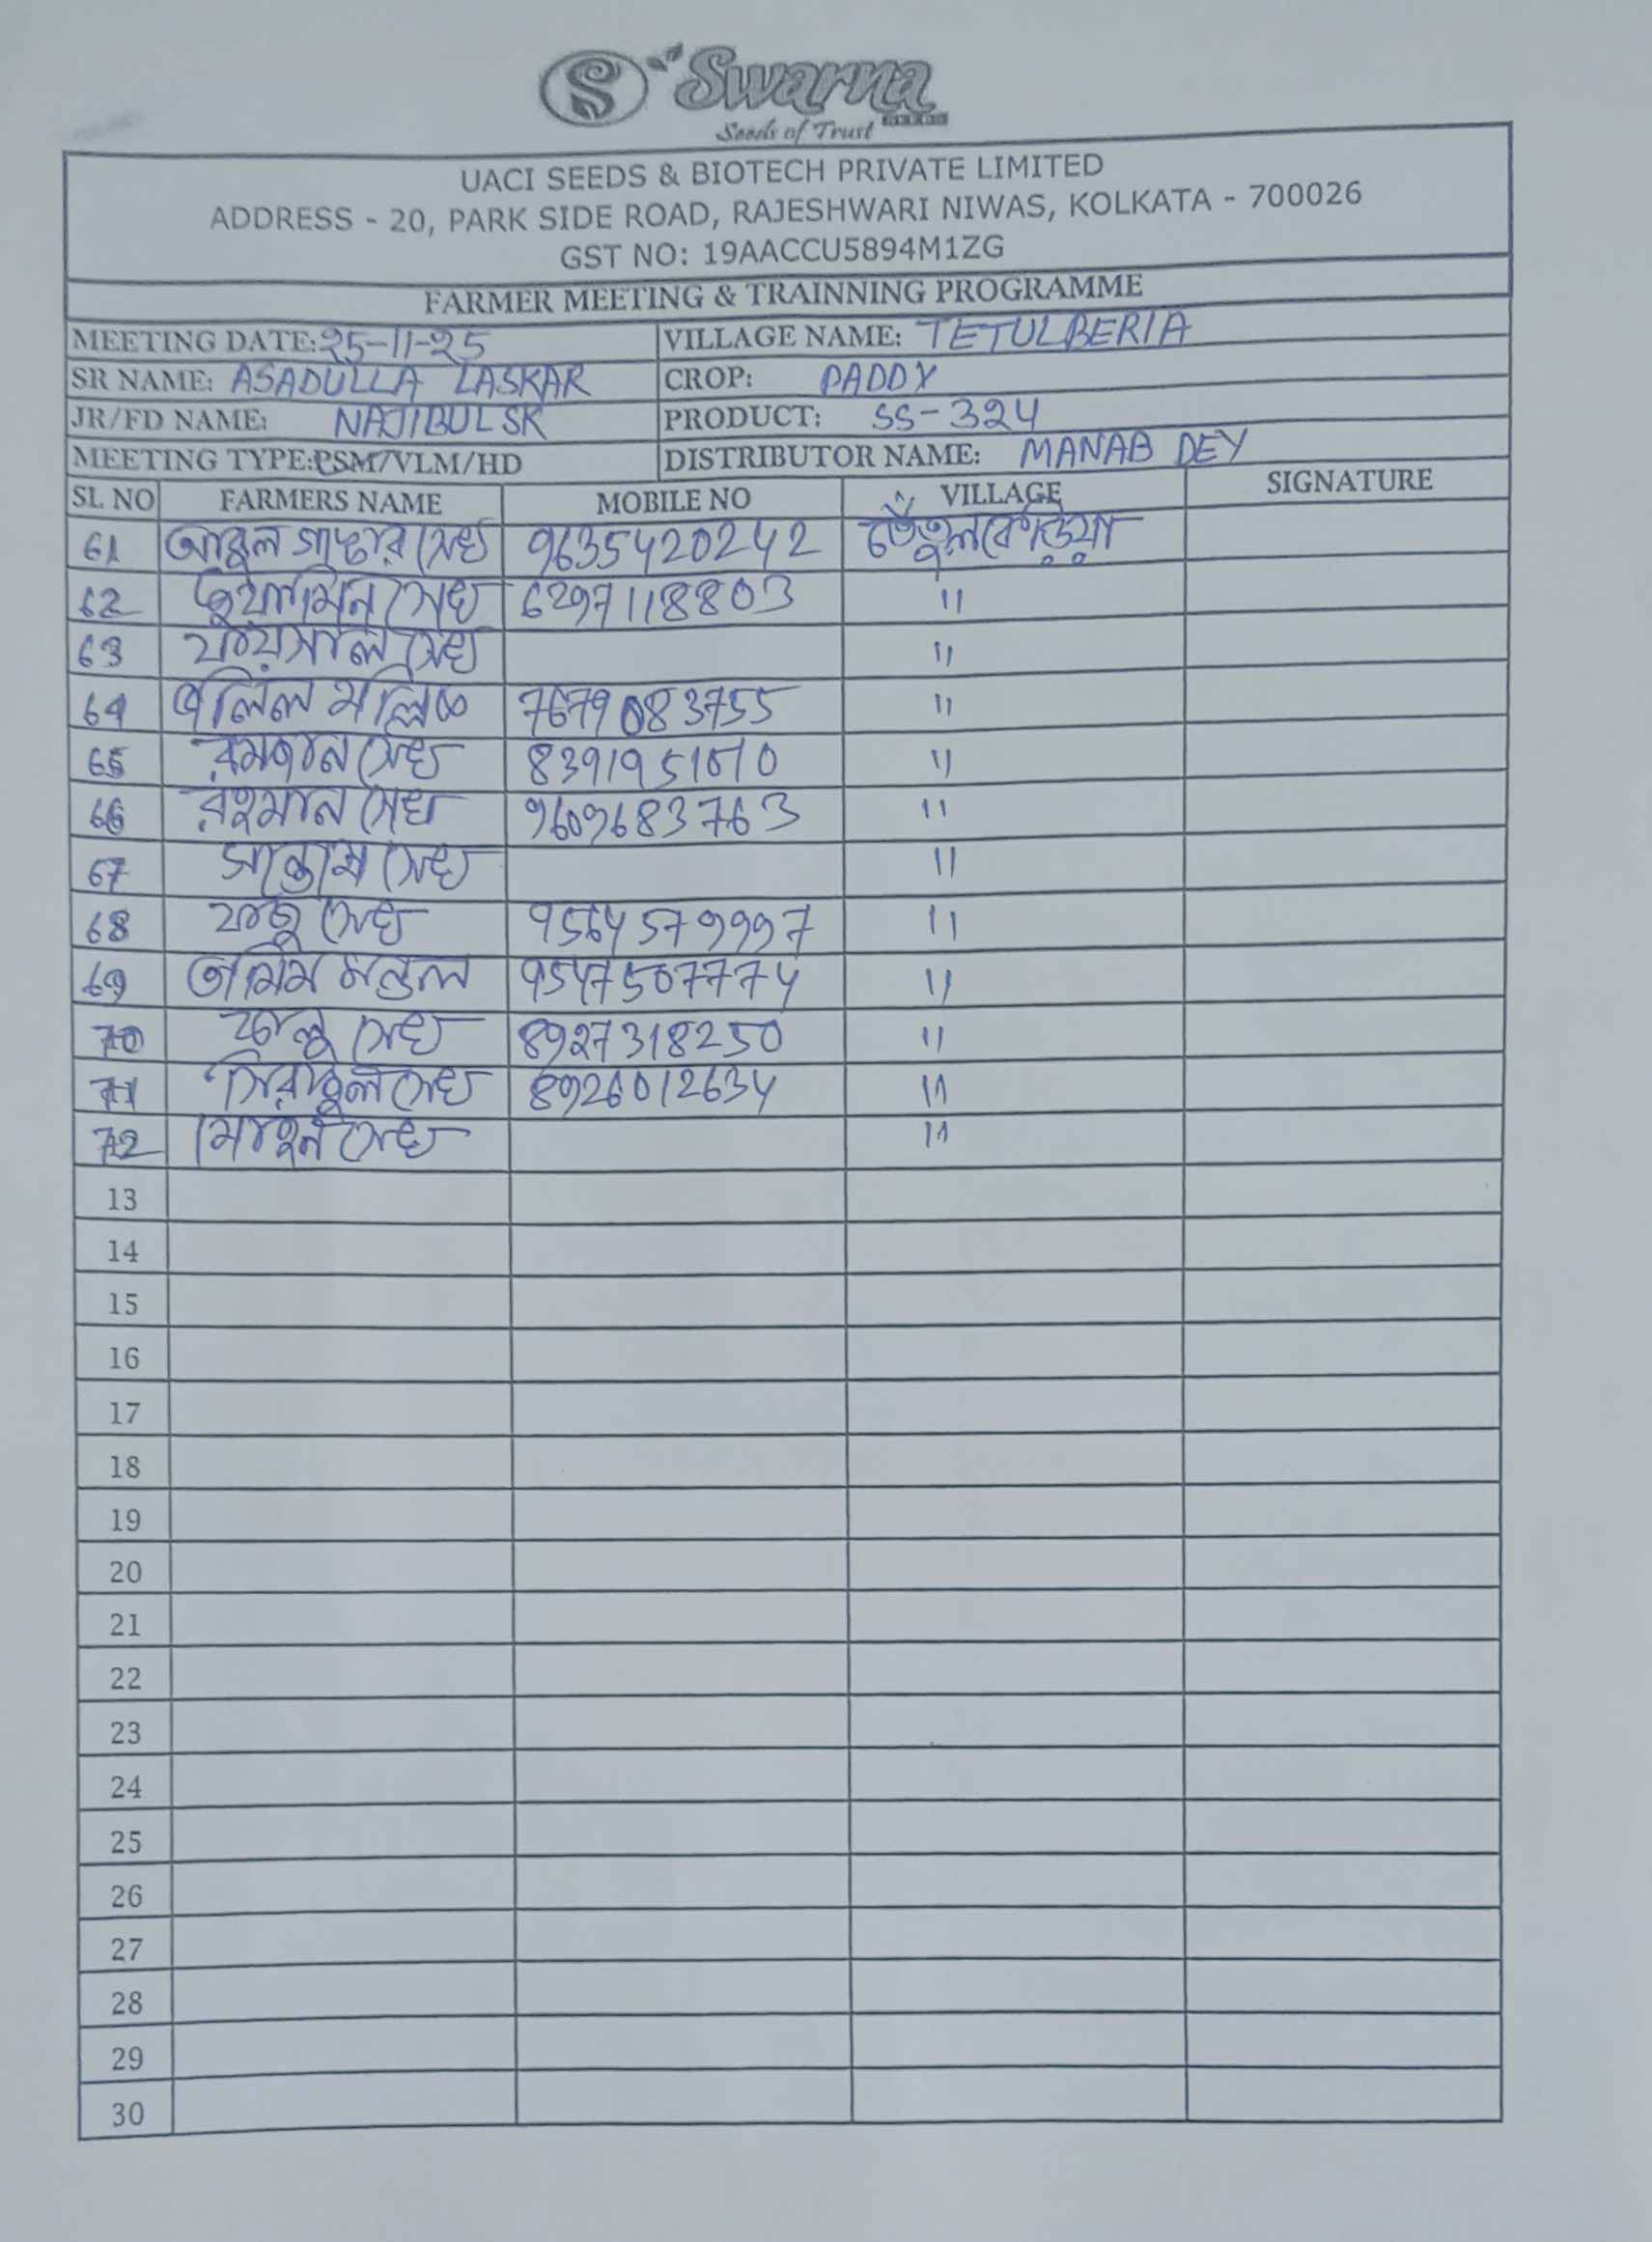 S Swarna
Seeds of Trust
UACI SEEDS & BIOTECH PRIVATE LIMITED
ADDRESS - 20, PARK SIDE ROAD, RAJESHWARI NIWAS, KOLKATA - 700026
GST NO: 19AACCU5894M1ZG
FARMER MEETING & TRAINNING PROGRAMME
MEETING DATE: 25-11-25 VILLAGE NAME: TETULBERIA
SR NAME: ASADULLA LASKAR CROP: PADDY
JR/FD NAME: NAJIBUL SK PRODUCT: SS-324
MEETING TYPE: PSM/VLM/HD DISTRIBUTOR NAME: MANAB DEY
SL NO FARMERS NAME MOBILE NO VILLAGE SIGNATURE
61 সেখ 9635420242 তেঁতুলবেড়িয়া
62 সেখ 6297118803 "
63 সেখ "
64 মল্লিক 7679083755 "
65 রমজান সেখ "
66 রহমান সেখ 9609683763 "
67 সেখ "
68 সেখ 9564579997 "
69 মন্ডল 9547507774 "
70 সেখ 8927318250 "
71 সেখ 8926012634 "
72 সেখ "
13
14
15
16
17
18
19
20
21
22
23
24
25
26
27
28
29
30